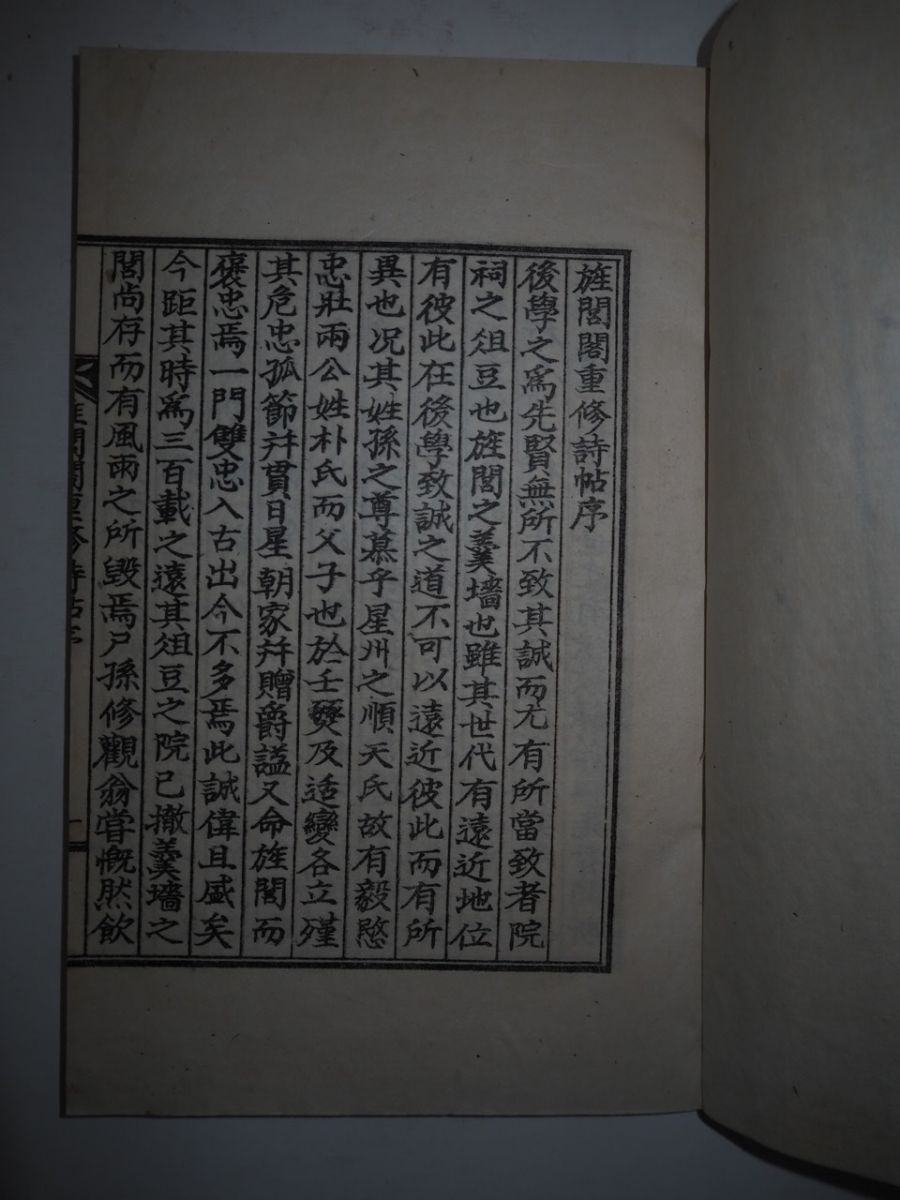 旌閭閣重修詩帖序
後學之爲先賢無所不致其誠而尤有所當致者院
祠之俎豆也旌閭之羹墻也雖其世代有遠近地位
有彼此在後學致誠之道不可以遠近彼此而有所
異也况其姓孫之尊慕乎星州之順天氏故有毅愍
忠壯兩公姓朴氏而父子也於壬燹及适變各立殣
其危忠孤節幷貫日星朝家幷贈爵謚又命旌閭而
褒忠焉一門雙忠入古出今不多焉此誠偉且盛矣
今距其時爲三百載之遠其俎豆之院已撤羹墻之
閭尚存而有風雨之所毁焉尸孫修觀翁嘗慨然飮
旌閭閣重修詩帖序
一